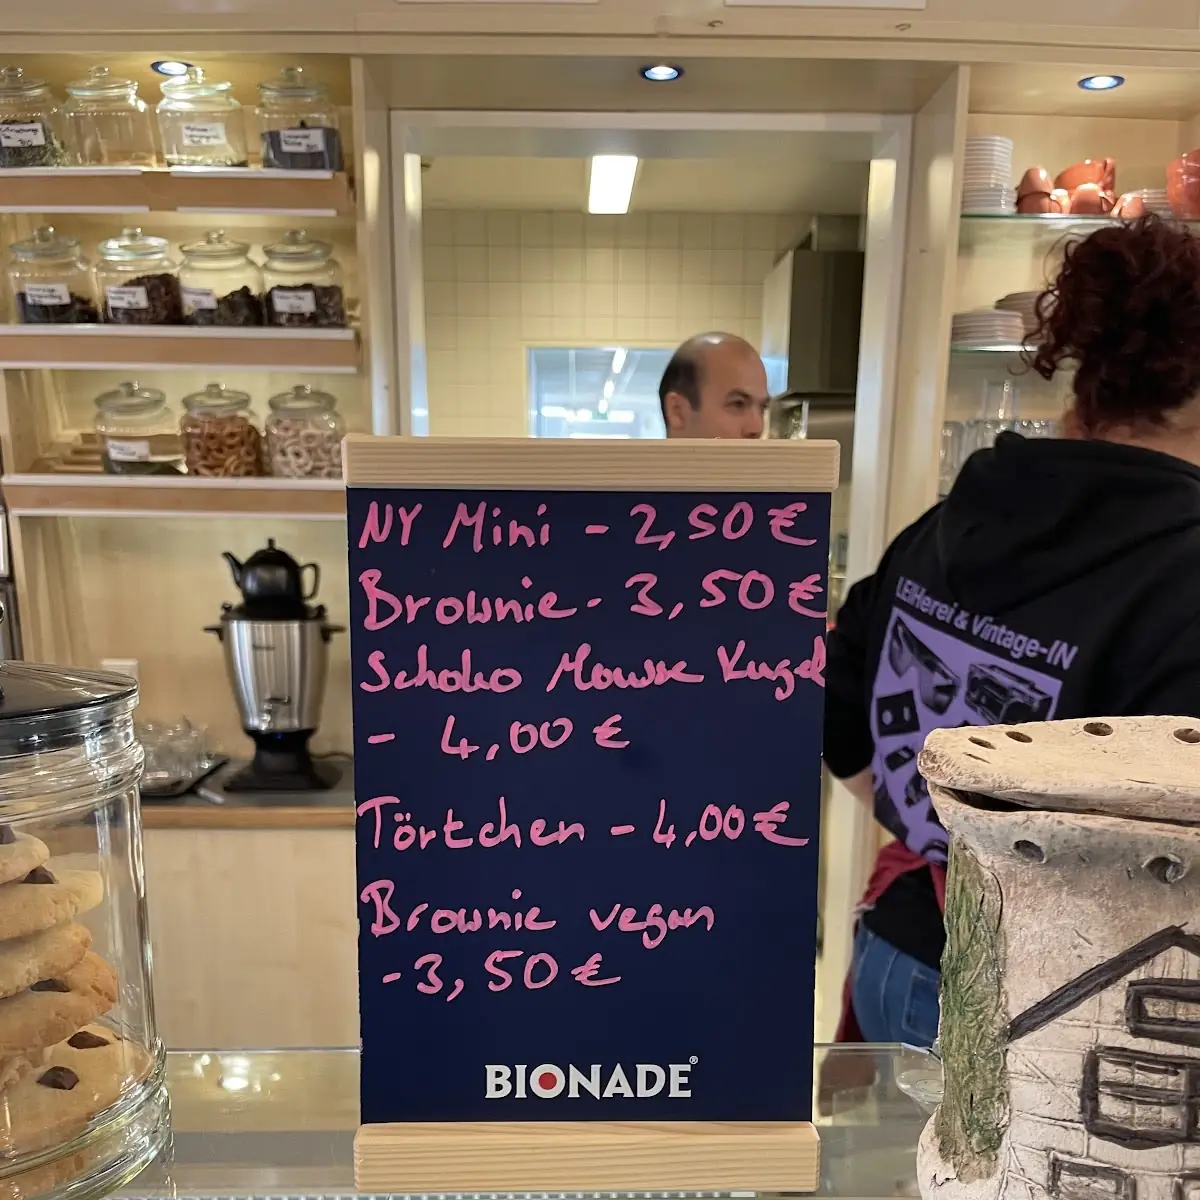 NY Mini - 2,50 €
Brownie - 3,50 €
Schoko Mousse Kugel
- 4,00 €
Törtchen - 4,00 €
Brownie vegan
- 3,50 €
BIONADE®
LEIHerei & Vintage-IN